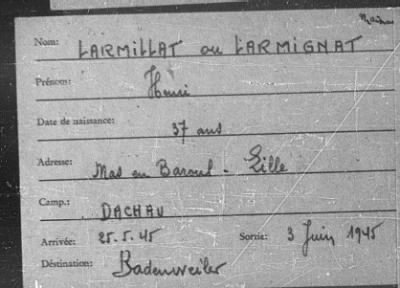 Nom: LARMILLAT ou LARMIGNAT
Prénom: Henri
Date de naissance: 37 ans
Adresse: Mas en Baroul - Lille
Camp.: DACHAU
Arrivée: 25.5.45 Sortie: 3 Juin 1945
Déstination: Badenweiler